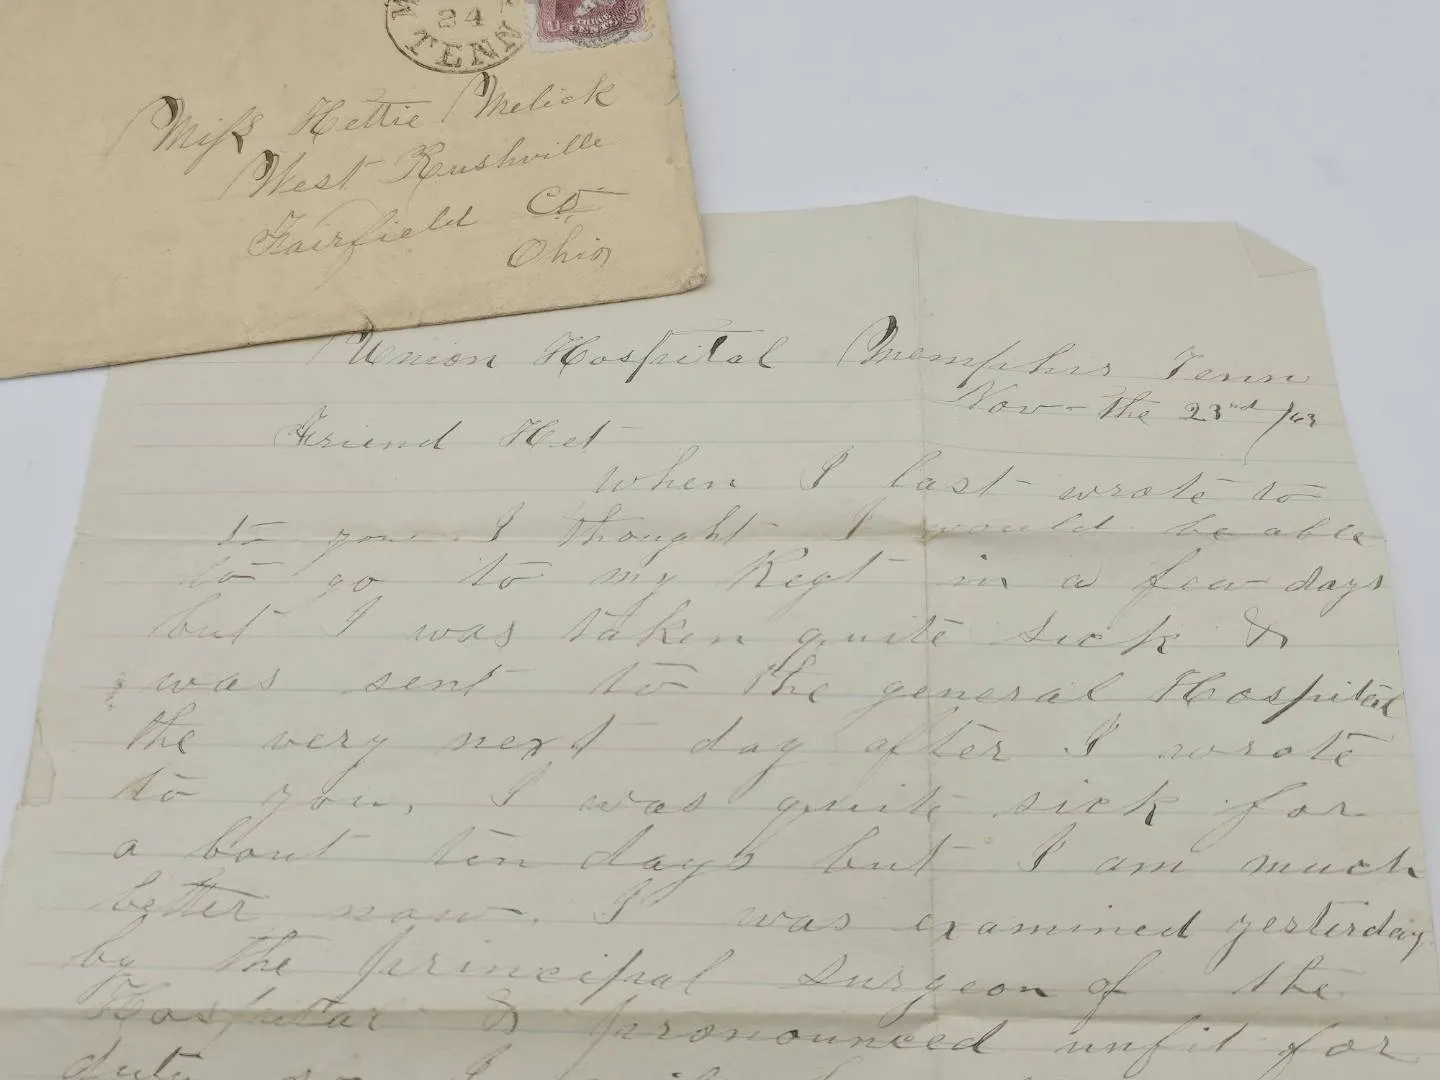 M
24
TENN
Miss Hettie Melick
West Rushville
Fairfield Co.
Ohio
Union Hospital Memphis Tenn
Nov - the 23nd /63
Friend Het
when I last wrote to
to you I thought I would be able
to go to my Regt in a few days
but I was taken quite sick &
was sent to the general Hospital
the very next day after I wrote
to you, I was quite sick for
a bout ten days but I am much
better now. I was examined yesterday
by the principal surgeon of the
Hospital & pronounced unfit for
duty so I